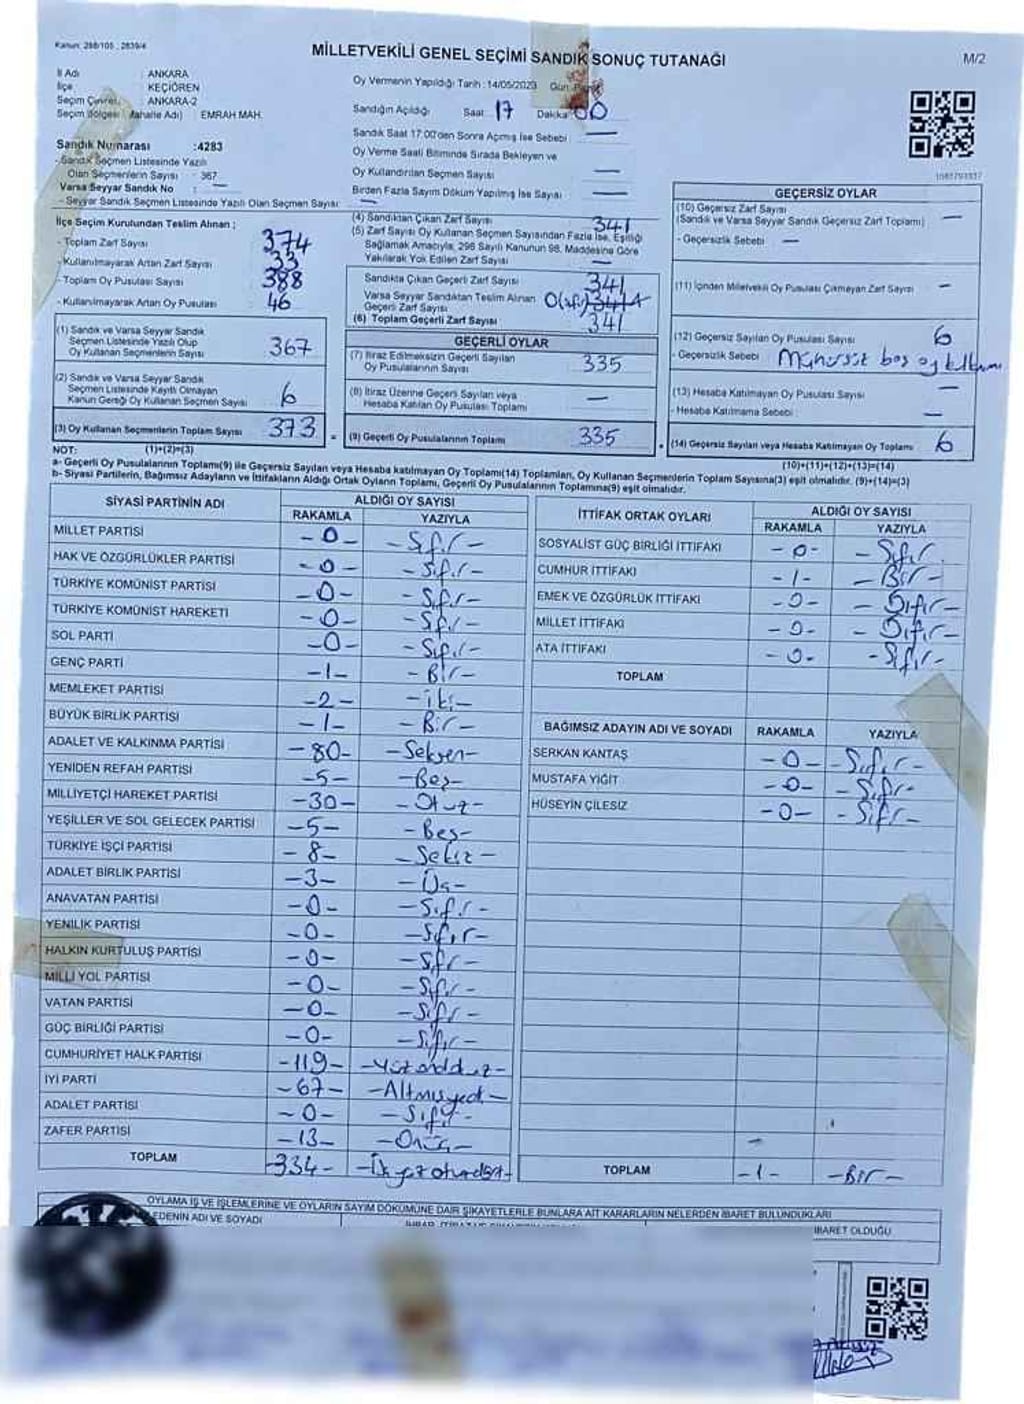 Kanun: 298/105 ; 2839/4
MİLLETVEKİLİ GENEL SEÇİMİ SANDIK SONUÇ TUTANAĞI
M/2
İl Adı : ANKARA
İlçe : KEÇİÖREN
Seçim Çevresi : ANKARA-2
Seçim Bölgesi (Mahalle Adı) EMRAH MAH.
Sandık Numarası :4283
- Sandık Seçmen Listesinde Yazılı
Olan Seçmenlerin Sayısı : 367
Varsa Seyyar Sandık No : —
- Seyyar Sandık Seçmen Listesinde Yazılı Olan Seçmen Sayısı : —
Oy Vermenin Yapıldığı Tarih : 14/05/2023 Gün :
Sandığın Açıldığı Saat : 17 Dakika : 00
Sandık Saat 17:00'den Sonra Açılmış İse Sebebi : —
Oy Verme Saati Bitiminde Sırada Bekleyen ve
Oy Kullandırılan Seçmen Sayısı : —
Birden Fazla Sayım Döküm Yapılmış İse Sayısı : —
1585793937
İlçe Seçim Kurulundan Teslim Alınan ;
- Toplam Zarf Sayısı 374
- Kullanılmayarak Artan Zarf Sayısı 33
- Toplam Oy Pusulası Sayısı 388
- Kullanılmayarak Artan Oy Pusulası 46
(1) Sandık ve Varsa Seyyar Sandık
Seçmen Listesinde Yazılı Olup
Oy Kullanan Seçmenlerin Sayısı 367
(2) Sandık ve Varsa Seyyar Sandık
Seçmen Listesinde Kayıtlı Olmayan
Kanun Gereği Oy Kullanan Seçmen Sayısı 6
(3) Oy Kullanan Seçmenlerin Toplam Sayısı 373 =
(1)+(2)=(3)
(4) Sandıktan Çıkan Zarf Sayısı 341
(5) Zarf Sayısı Oy Kullanan Seçmen Sayısından Fazla İse, Eşitliği
Sağlamak Amacıyla, 298 Sayılı Kanunun 98. Maddesine Göre
Yakılarak Yok Edilen Zarf Sayısı —
Sandıkta Çıkan Geçerli Zarf Sayısı 341
Varsa Seyyar Sandıktan Teslim Alınan 0(sıfır)
Geçerli Zarf Sayısı
(6) Toplam Geçerli Zarf Sayısı 341
GEÇERLİ OYLAR
(7) İtiraz Edilmeksizin Geçerli Sayılan
Oy Pusulalarının Sayısı 335
(8) İtiraz Üzerine Geçerli Sayılan veya
Hesaba Katılan Oy Pusulası Toplamı —
(9) Geçerli Oy Pusulalarının Toplamı 335 +
GEÇERSİZ OYLAR
(10) Geçersiz Zarf Sayısı
(Sandık ve Varsa Seyyar Sandık Geçersiz Zarf Toplamı) —
- Geçersizlik Sebebi : —
(11) İçinden Milletvekili Oy Pusulası Çıkmayan Zarf Sayısı —
(12) Geçersiz Sayılan Oy Pusulası Sayısı 6
- Geçersizlik Sebebi : Mühürsüz boş oy
(13) Hesaba Katılmayan Oy Pusulası Sayısı —
- Hesaba Katılmama Sebebi : —
(14) Geçersiz Sayılan veya Hesaba Katılmayan Oy Toplamı 6
(10)+(11)+(12)+(13)=(14)
NOT:
a- Geçerli Oy Pusulalarının Toplamı(9) ile Geçersiz Sayılan veya Hesaba katılmayan Oy Toplamı(14) Toplamları, Oy Kullanan Seçmenlerin Toplam Sayısına(3) eşit olmalıdır. (9)+(14)=(3)
b- Siyasi Partilerin, Bağımsız Adayların ve İttifakların Aldığı Ortak Oyların Toplamı, Geçerli Oy Pusulalarının Toplamına(9) eşit olmalıdır.
SİYASİ PARTİNİN ADI ALDIĞI OY SAYISI
RAKAMLA YAZIYLA
MİLLET PARTİSİ -0- -Sıfır-
HAK VE ÖZGÜRLÜKLER PARTİSİ -0- -Sıfır-
TÜRKİYE KOMÜNİST PARTİSİ -0- -Sıfır-
TÜRKİYE KOMÜNİST HAREKETİ -0- -Sıfır-
SOL PARTİ -0- -Sıfır-
GENÇ PARTİ -1- -Bir-
MEMLEKET PARTİSİ -2- -iki-
BÜYÜK BİRLİK PARTİSİ -1- -Bir-
ADALET VE KALKINMA PARTİSİ -80- -Seksen-
YENİDEN REFAH PARTİSİ -5- -Beş-
MİLLİYETÇİ HAREKET PARTİSİ -30- -Otuz-
YEŞİLLER VE SOL GELECEK PARTİSİ -5- -Beş-
TÜRKİYE İŞÇİ PARTİSİ -8- -Sekiz-
ADALET BİRLİK PARTİSİ -3- -Üç-
ANAVATAN PARTİSİ -0- -Sıfır-
YENİLİK PARTİSİ -0- -Sıfır-
HALKIN KURTULUŞ PARTİSİ -0- -Sıfır-
MİLLİ YOL PARTİSİ -0- -Sıfır-
VATAN PARTİSİ -0- -Sıfır-
GÜÇ BİRLİĞİ PARTİSİ -0- -Sıfır-
CUMHURİYET HALK PARTİSİ -119- -Yüzondokuz-
İYİ PARTİ -67- -Altmışyedi-
ADALET PARTİSİ -0- -Sıfır-
ZAFER PARTİSİ -13- -Onüç-
TOPLAM -334- -Üçyüzotuzdört-
İTTİFAK ORTAK OYLARI ALDIĞI OY SAYISI
RAKAMLA YAZIYLA
SOSYALİST GÜÇ BİRLİĞİ İTTİFAKI -0- -Sıfır-
CUMHUR İTTİFAKI -1- -Bir-
EMEK VE ÖZGÜRLÜK İTTİFAKI -0- -Sıfır-
MİLLET İTTİFAKI -0- -Sıfır-
ATA İTTİFAKI -0- -Sıfır-
TOPLAM
BAĞIMSIZ ADAYIN ADI VE SOYADI RAKAMLA YAZIYLA
SERKAN KANTAŞ -0- -Sıfır-
MUSTAFA YİĞİT -0- -Sıfır-
HÜSEYİN ÇİLESİZ -0- -Sıfır-
TOPLAM -1- -Bir-
OYLAMA İŞ VE İŞLEMLERİNE VE OYLARIN SAYIM DÖKÜMÜNE DAİR ŞİKAYETLERLE BUNLARA AİT KARARLARIN NELERDEN İBARET BULUNDUKLARI
EDENİN ADI VE SOYADI
İBARET OLDUĞU